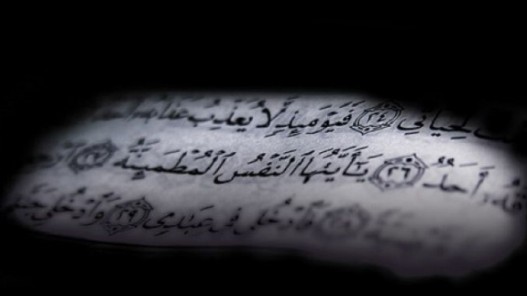 لِحَيَاتِى ٢٤ فَيَوْمَئِذٍ لَّا يُعَذِّبُ عَذَابَهُۥٓ
أَحَدٌ ٢٦ يَٰٓأَيَّتُهَا ٱلنَّفْسُ ٱلْمُطْمَئِنَّةُ ٢٧
فَٱدْخُلِى فِى عِبَٰدِى ٢٩ وَٱدْخُلِى